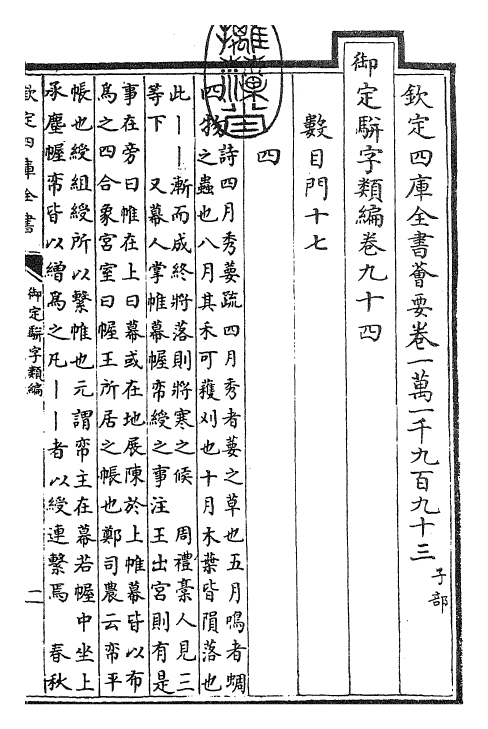 欽定四庫全書薈要卷一萬一千九百九十三 子部
御定駢字類編卷九十四
數目門十七
四
四物 詩四月秀葽疏四月秀者葽之草也五月鳴者蜩
之蟲也八月其禾可穫刈也十月木葉皆隕落也
此――漸而成終將落則將寒之候 周禮槀人見三
等下 又幕人掌帷幕幄帟綬之事注王出宮則有是
事在旁曰帷在上曰幕或在地展陳於上帷幕皆以布
爲之四合象宮室曰幄王所居之帳也鄭司農云帟平
帳也綬組綬所以繫帷也元謂帟主在幕若幄中坐上
承塵幄帟皆以繒爲之凡――者以綬連繫焉 春秋
欽定四庫全書
御定駢字類編
二